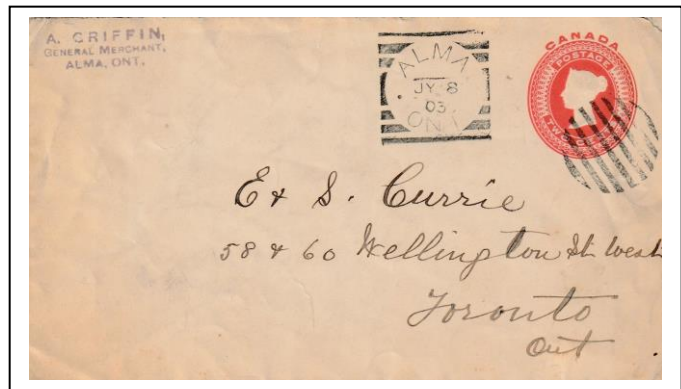 A. GRIFFIN,
GENERAL MERCHANT,
ALMA, ONT.
ALMA
JY 8
03
ONT
CANADA
POSTAGE
E & S. Currie
58 & 60 Wellington St. West
Toronto
Ont